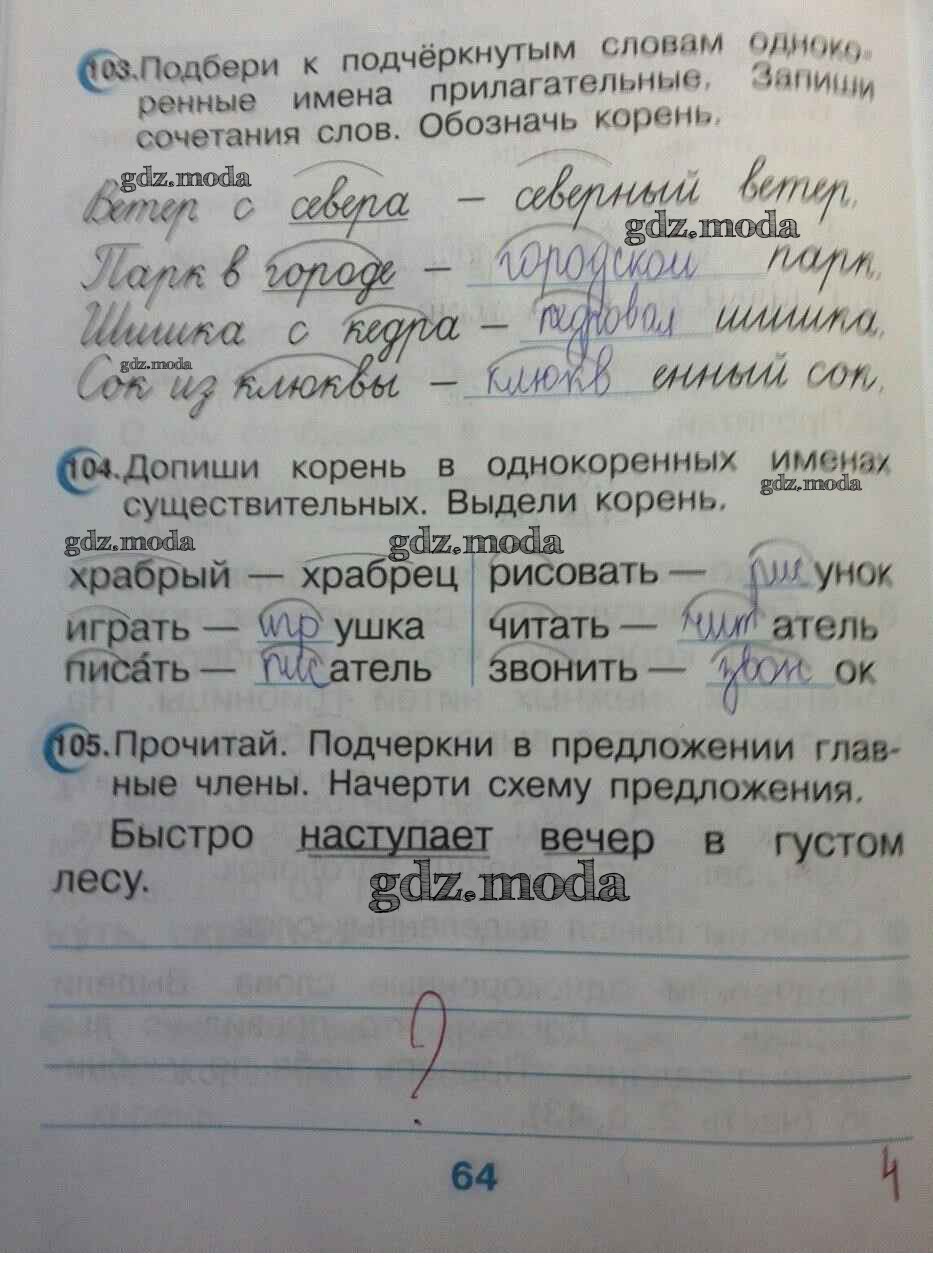 103.Подбери к подчёркнутым словам одноко-
ренные имена прилагательные. Запиши
сочетания слов. Обозначь корень.
gdz.moda
Ветер с севера – северный ветер.
gdz.moda
Парк в городе – городской парк.
Шишка с кедра – кедровая шишка.
gdz.moda
Сок из клюквы – клюкв енный сок.
104.Допиши корень в однокоренных именах
gdz.moda
существительных. Выдели корень.
gdz.moda gdz.moda
храбрый — храбрец рисовать — рис унок
играть — игр ушка читать — чит атель
писа́ть — писатель звонить — звон ок
105.Прочитай. Подчеркни в предложении глав-
ные члены. Начерти схему предложения.
Быстро наступает вечер в густом
лесу.
gdz.moda
?
64
4